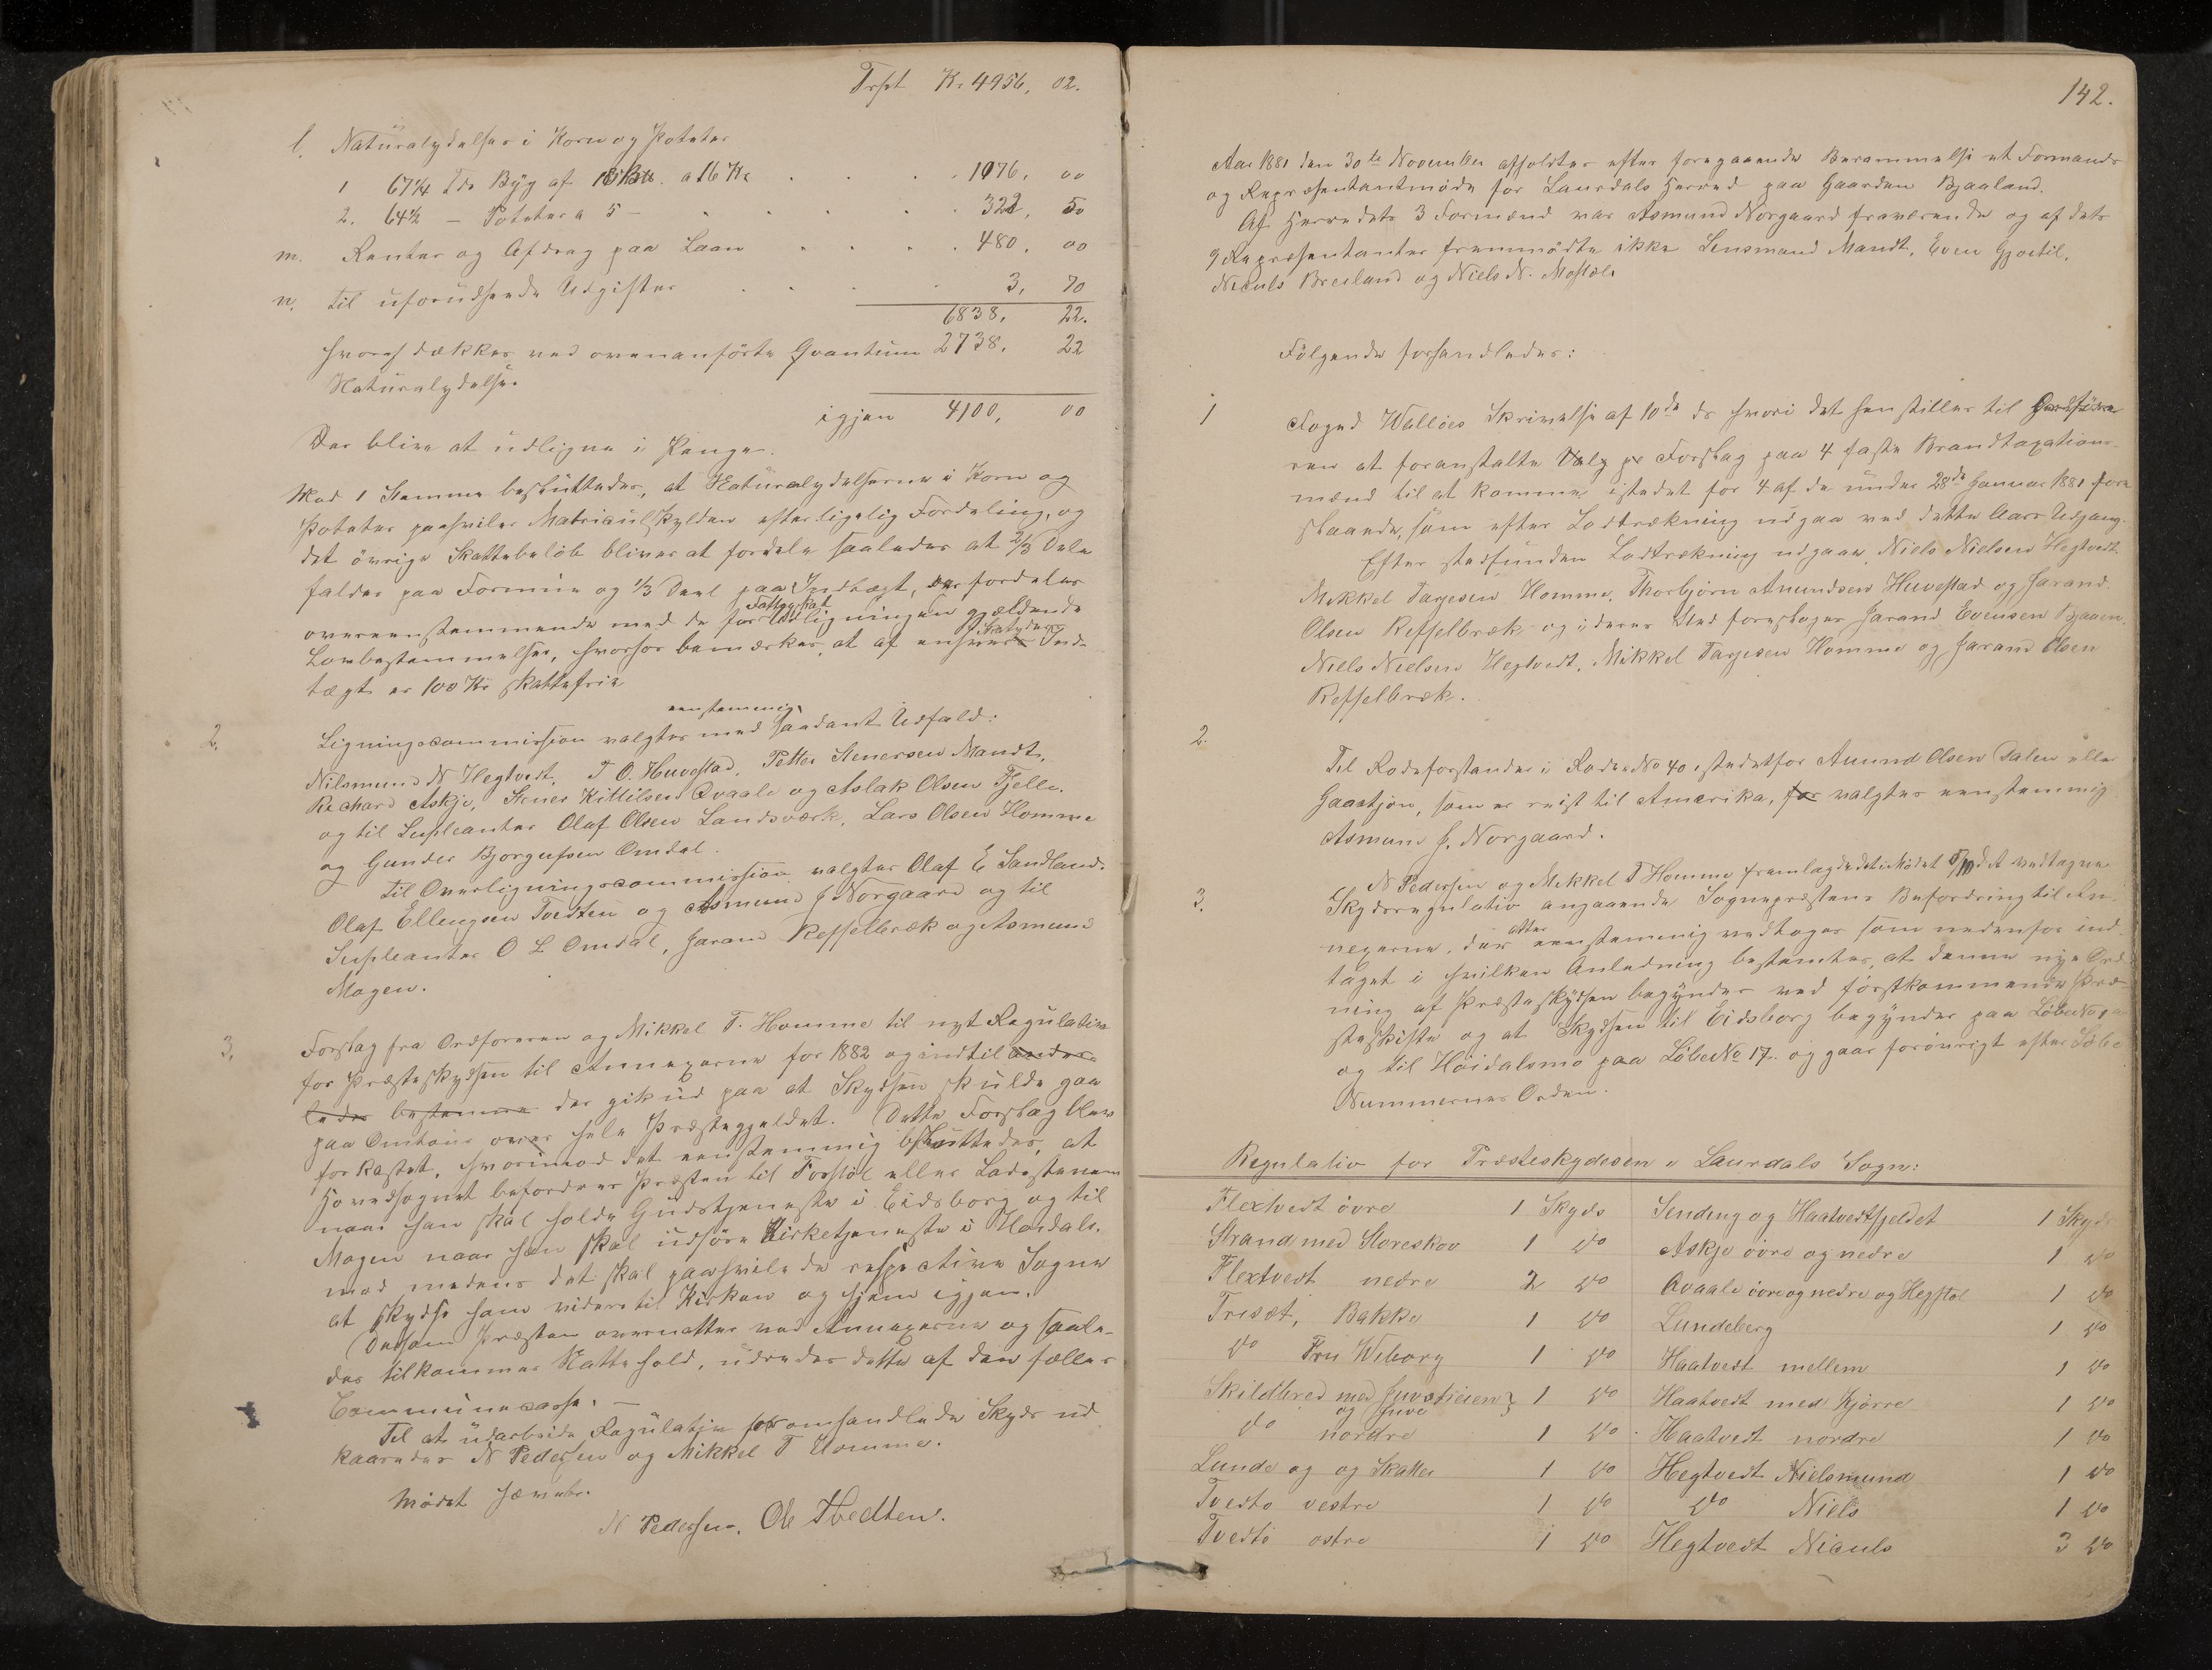 Trspt Kr 4956, 02.
l. Naturalydelser i Korn og Poteter
1 67¼ Tdr Byg af a 16 Kr 1076, 00
2. 64½ — Poteter a 5 — 322, 50
m. Renter og Afdrag paa Laan 480, 00
n. til uforudseende Udgifter 3, 70
6838, 22.
hvoraf dækkes ved ovenanførte Qvantum 2738, 22
Naturalydelse.
igjen 4100, 00
Der blive at udligne i Penge.
Mod 1 Stemme besluttedes, at Naturalydelserne i Korn og
Poteter paahviler Matriculskylden efter ligelig Fordeling, og
det øvrige Skattebeløb bliver at fordele saaledes at 2/3 Dele
falder paa Formue og 1/3 Deel paa Indtægt, der fordeles
overensstemmende med de for Fattigskat Udligningen gjældende
Lovbestemmelser, hvorfor bemærkes, at af enhver Skatyders Ind-
tægt er 100 Kr skattefrie
2. Ligningscommission valgtes eenstemmig med saadant Udfald:
Nilsmund N Hegtvedt, T O. Huvestad, Petter Stenersen Mandt,
Richard Askje, Stener Kittilsen Qvaale og Aslak Olsen Fjelle.
og til Supleanter Olaf Olsen Landsværk, Lars Olsen Homme
og Gunder Bjorgufsen Omdal.
Til Overligningscommission valgtes Olaf E Sandland.
Olaf Ellingsen Tvedten og Asmund J Norgaard og til
Supleanter O L Omdal, Jarand Refselbræk og Asmund
Mogen.
3. Forslag fra Ordføreren og Mikkel T. Homme til nyt Regulativ
for Præsteskydsen til Annexerne for 1882 og indtil ander-
ledes bestemme der gik ud paa at Skydsen skulde gaa
paa Omtour over hele Præstegjeldet. Dette Forslag blev
forkastet, hvorimod det eenstemmig besluttedes, at
Hovedsognet befordrer Præsten til Forstøl eller Ladestenen
naar han skal holde Gudstjeneste i Eidsborg og til
Mogen naar han skal udføre Kirketjeneste i Høidals-
mod medens det skal paahvile de respective Sogne
at skydse ham videre til Kirken og hjem igjen.
Dersom Præsten overnatter ved Annexerne og saale-
des tilkommer Nattehold, udredes dette af den fælles
Communecasse. —
Til at udarbeide Regulativ for omhandlede Skyds ud
kaaredes N Pedersen og Mikkel T Homme.
Mødet hævet.
N Pedersen. Ole Tvedten.
142.
Aar 1881 den 30te November afholdtes efter foregaaende Berammelse et Formands
og Repræsentantmøde for Laurdals Herred paa Gaarden Bjaaland.
Af Herredets 3 Formænd var Asmund Norgaard fraværende og af dets
9 Repræsentanter fremmødte ikke Lensmand Mandt, Even Gjortil,
Niculs Breiland og Niels N.
Følgende forhandledes:
1 Foged Walløes Skrivelse af 10de ds hvori det henstilles til Ordføre
ren at foranstalte Valg pr Forslag paa 4 faste Brandtaxations-
mænd til at komme istedet for 4 af de under 28de Januar 1881 fore
slaaede, som efter Lodtrækning udgaa ved dette Aars Udgang.
Efter stedfunden Lodtrækning udgaar Niels Nielsen Hegtvedt
Mikkel Tarjesen Homme, Thorbjørn Amundsen Huvestad og Jarand
Olsen Refselbræk og i deres Sted foreslages Jarand Evensen Bjaaen,
Niels Nielsen Hegtvedt, Mikkel Tarjesen Homme og Jarand Olsen
Refselbræk.
2. Til Rodeforstander i Rode No 40 istedetfor Amund Olsen Dalen eller
Gaastjøn, som er reist til Amerika, for valgtes eenstemmig
Asmund J. Norgaard.
3. N Pedersen og Mikkel T Homme fremlagde det i Mødet d. A vedtagne
Skydsregulativ angaaende Sognepræstens Befordring til An-
nexerne, der atter eenstemmig vedtoges som nedenfor ind
taget i hvilken Anledning bestemtes, at denne nye Ord
ning af Præsteskydsen begynder ved førstkommende Præ
steskifte og at Skydsen til Eidsborg begynder paa Løbe No 1
og til Høidalsmo paa Løbe No 17. og gaar forøvrigt efter Løbe
Nummernes Orden.
Regulativ for Præsteskydsen i Laurdals Sogn:
Flextvedt øvre 1 Skyds
Strand med Storeskov 1 do
Flextvedt nedre 2 do
Trisæt, Bakke 1 do
do Fru Wiborg 1 do
Skildbred med Juvstieien og Juve } 1 do
do nordre 1 do
Lunde og og Skatter 1 do
Tvedto vestre 1 do
Tvedto østre 1 do
Sending og Haatvedtfjeldet 1 Skyds
Askje øvre og nedre 1 do
Qvaale øvre og nedre og Hegstøl 1 do
Lundeberg 1 do
Haatvedt mellem 1 do
Haatvedt med Kjørre 1 do
Haatvedt nordre 1 do
Hegtvedt Nielsmund 1 do
do Niels 1 do
Hegtvedt Niculs 3 do